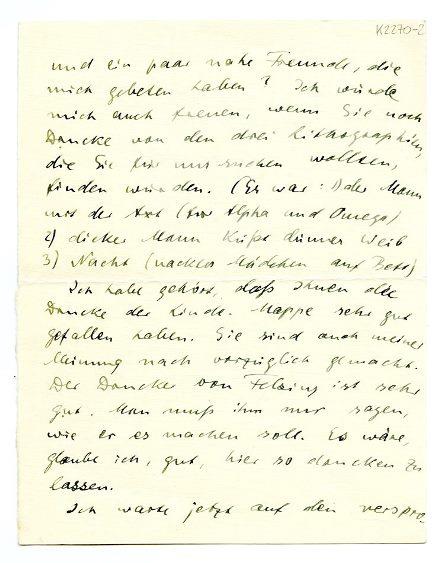 K2270-2
und ein paar nahe Freunde, die
mich gebeten haben? Ich würde
mich auch freuen, wenn Sie noch
Drucke von den drei Lithographien,
die Sie für uns suchen wollten,
finden würden. (Es war: 1) der Mann
mit der Axt (für Alpha und Omega)
2) dicker Mann küsst dünnes Weib
3) Nacht (nacktes Mädchen auf Bett)
Ich habe gehört, daß Ihnen die
Drucke der Linde-Mappe sehr gut
gefallen haben. Sie sind auch meiner
Meinung nach vorzüglich gemacht.
Der Drucker von Felsing ist sehr
gut. Man muß ihm nur sagen,
wie er es machen soll. Es wäre,
glaube ich, gut, hier so drucken zu
lassen.
Ich warte jetzt auf den verspro-